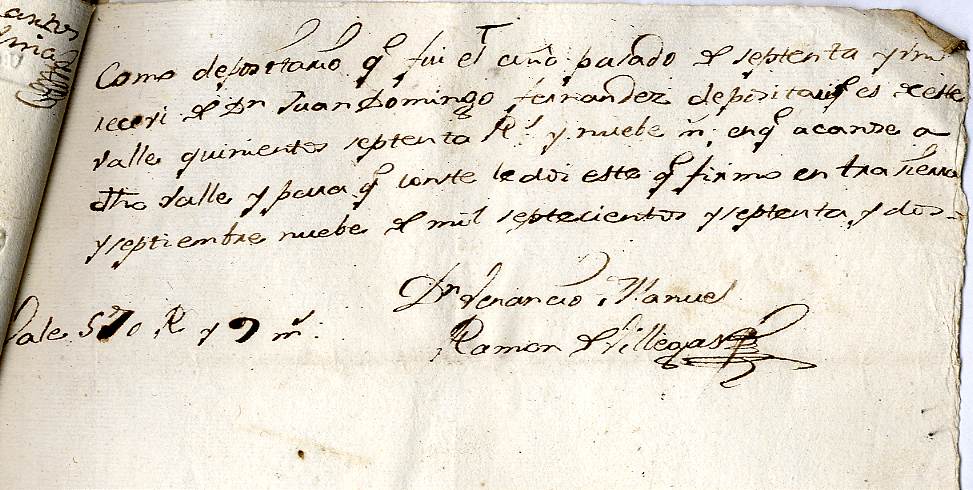 Como depositario q fui el año pasado de septenta y un
recevi de Dn Juan Domingo fernandez depositario q es de este
valle quinientos septenta Rs y nuebe ms en q acanze a
dho valle y para q conste le doi este q firmo en tra sierra
y septiembre nuebe de mil septecientos y septenta y dos
Dn Venancio Manuel
Vale 570 R y 9 ms
Ramon de Villegas